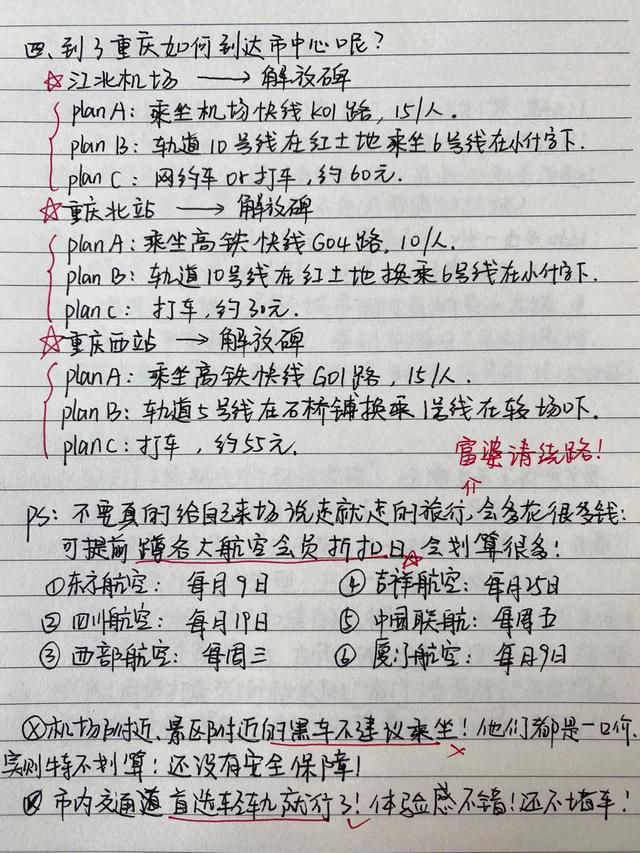 四、到了重庆如何到达市中心呢？
☆江北机场 → 解放碑
plan A：乘坐机场快线K01路，15/人．
plan B：轨道10号线在红土地乘坐6号线在小什字下．
plan C：网约车or打车，约60元．
☆重庆北站 → 解放碑
plan A：乘坐高铁快线G04路，10/人．
plan B：轨道10号线在红土地换乘6号线在小什字下．
plan C：打车，约30元．
☆重庆西站 → 解放碑
plan A：乘坐高铁快线G01路，15/人．
plan B：轨道5号线在石桥铺换乘1号线在较场口下．
plan C：打车，约55元．
富婆请绕路！
PS：不要真的给自己来场说走就走的旅行，会多花很多钱：
可提前蹲各大航空会员折扣日，会划算很多！
①东方航空：每月9日 ④吉祥航空：每月25日
②四川航空：每月19日 ⑤中国联航：每周五
③西部航空：每周三 ⑥厦门航空：每月9日
ⓧ机场附近、景区附近的黑车不建议乘坐！他们都是一口价．
实则特不划算！还没有安全保障！
市内交通道首选轻轨就行了！体验感不错！还不堵车！